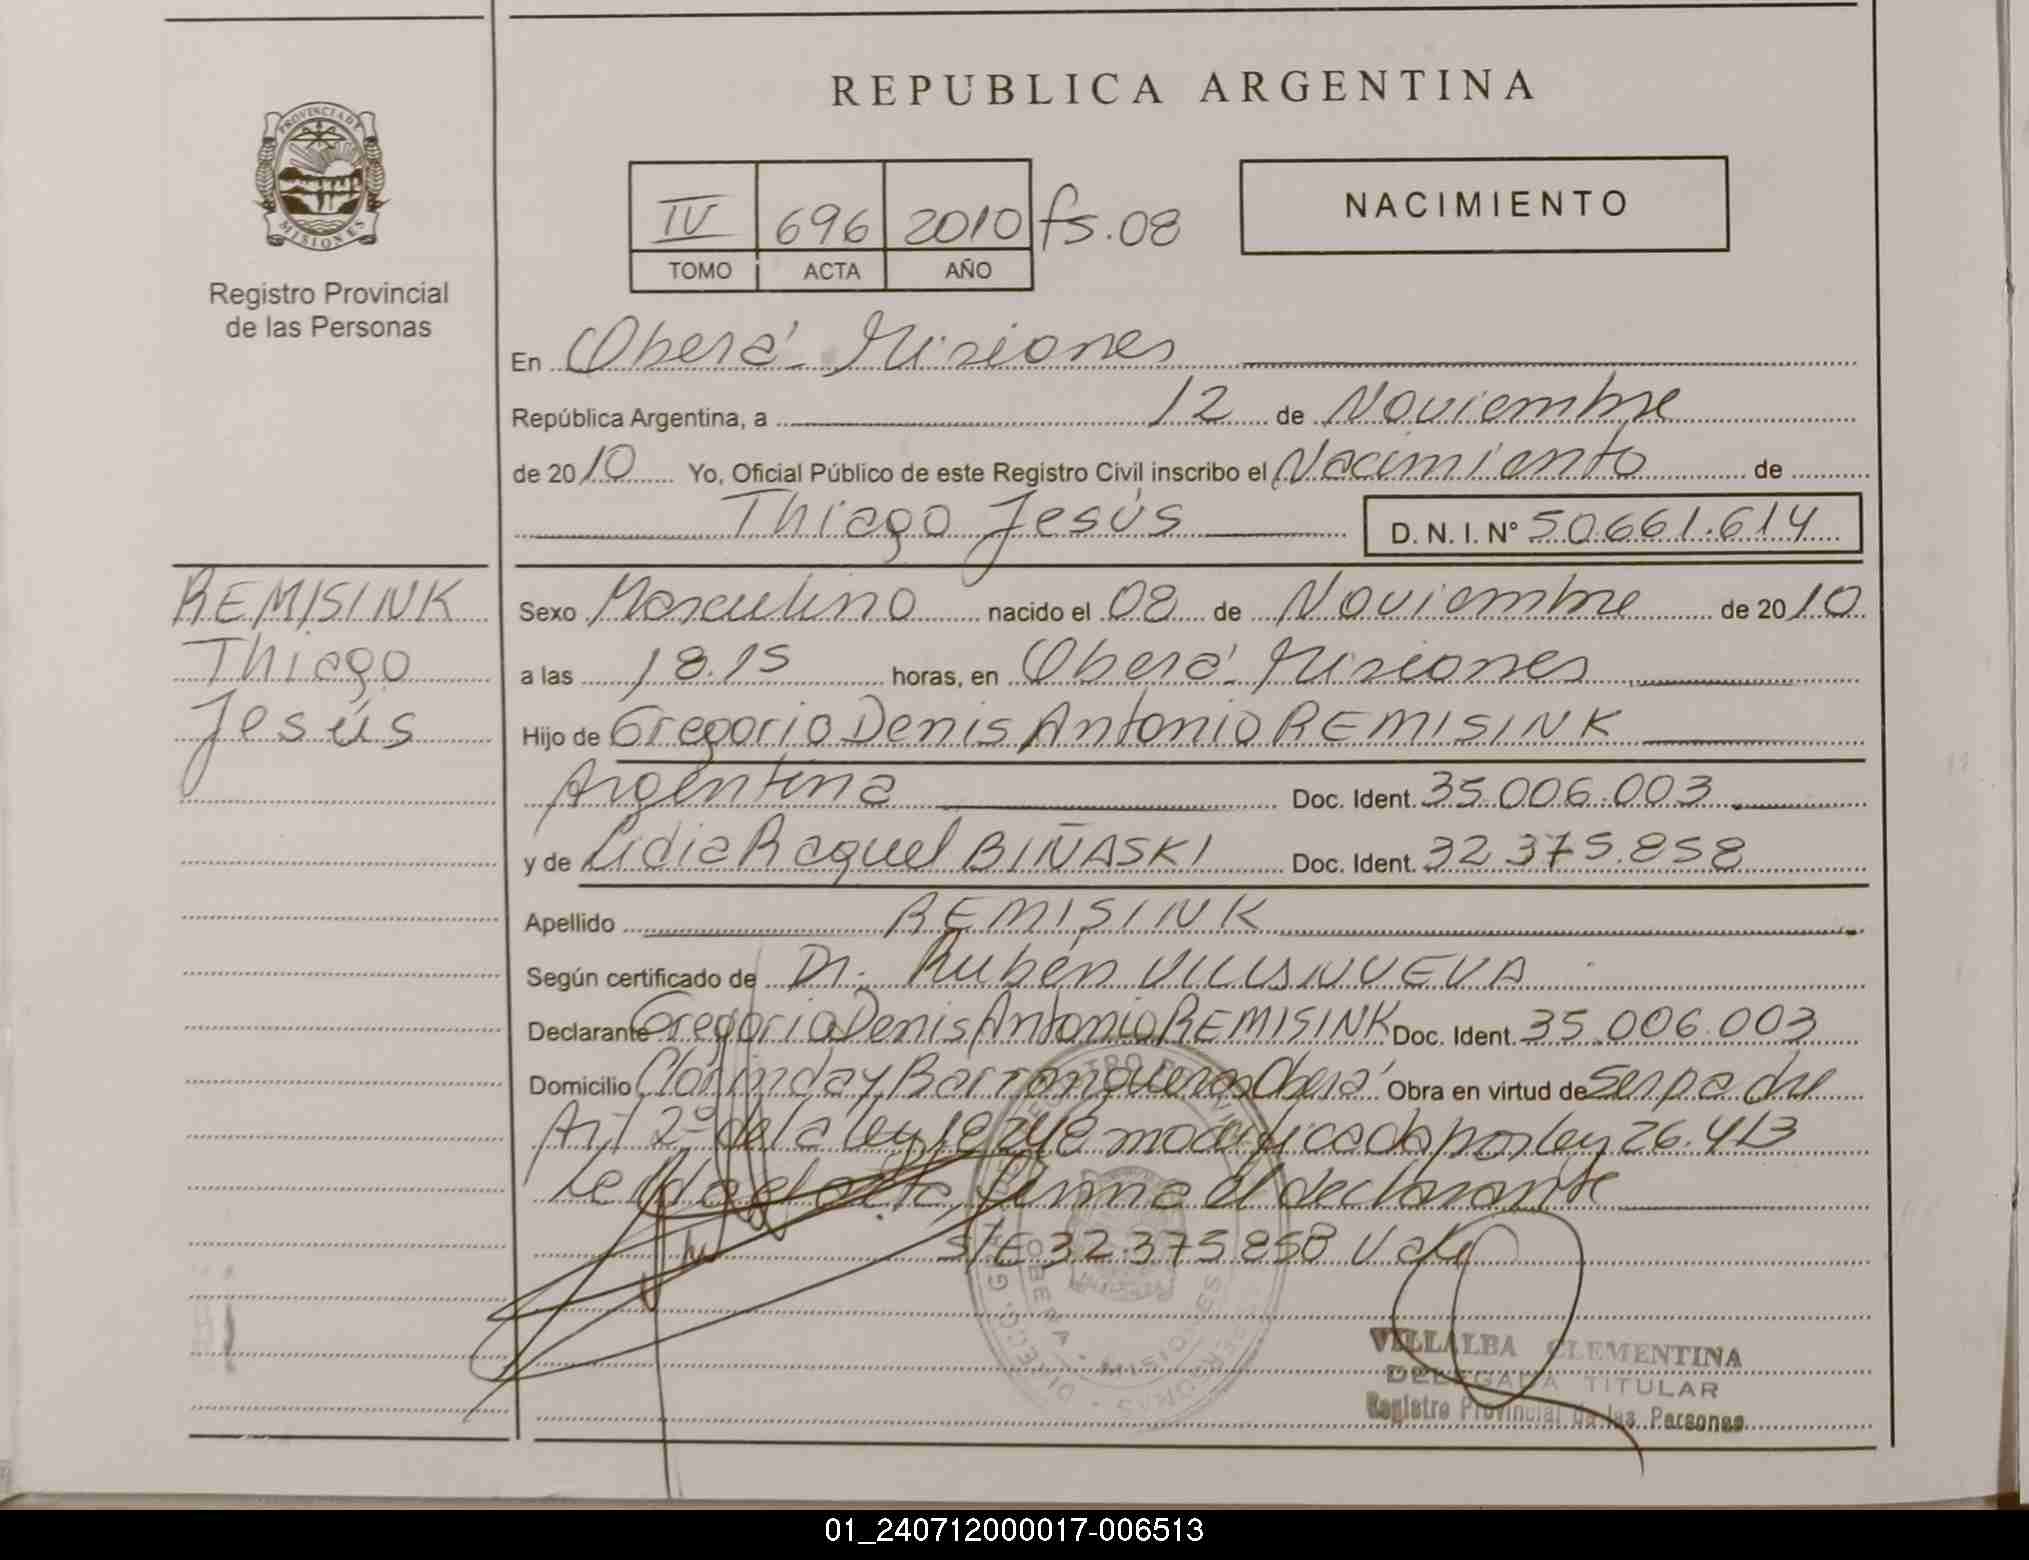 REPUBLICA ARGENTINA
PROVINCIA DE
MISIONES
Registro Provincial
de las Personas
IV 696 2010 fs. 08
TOMO ACTA AÑO
NACIMIENTO
En Oberá Misiones
República Argentina, a 12 de Noviembre
de 2010 Yo, Oficial Público de este Registro Civil inscribo el Nacimiento de
Thiago Jesús D. N. I. N° 50661.614
REMISINK
Thiago
Jesús
Sexo Masculino nacido el 08 de Noviembre de 2010
a las 18.15 horas, en Oberá Misiones
Hijo de Gregorio Denis Antonio REMISINK
Argentina Doc. Ident. 35.006.003
y de Lidia Raquel BIÑASKI Doc. Ident. 32.375.858
Apellido REMISINK
Según certificado de Dr. Rubén VILLANUEVA
Declarante Gregorio Denis Antonio REMISINK Doc. Ident. 35.006.003
Domicilio Clorinda y Barranqueras Oberá Obra en virtud de Ser padre
Art 2º de la ley 18248 modificado por ley 26.413
Leída el acta firma el declarante
S/E 32.375.858 Vale
VILLALBA CLEMENTINA
DELEGADA TITULAR
Registro Provincial de las Personas
01_240712000017-006513